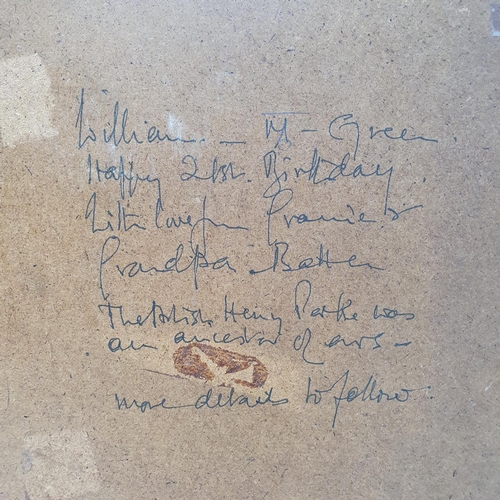 William. - M - Green.
Happy 21st. Birthday.
With love from Grannie &
Grandpa Batten
The Artist Henry Parke was
an ancestor of ours -
more details to follow.